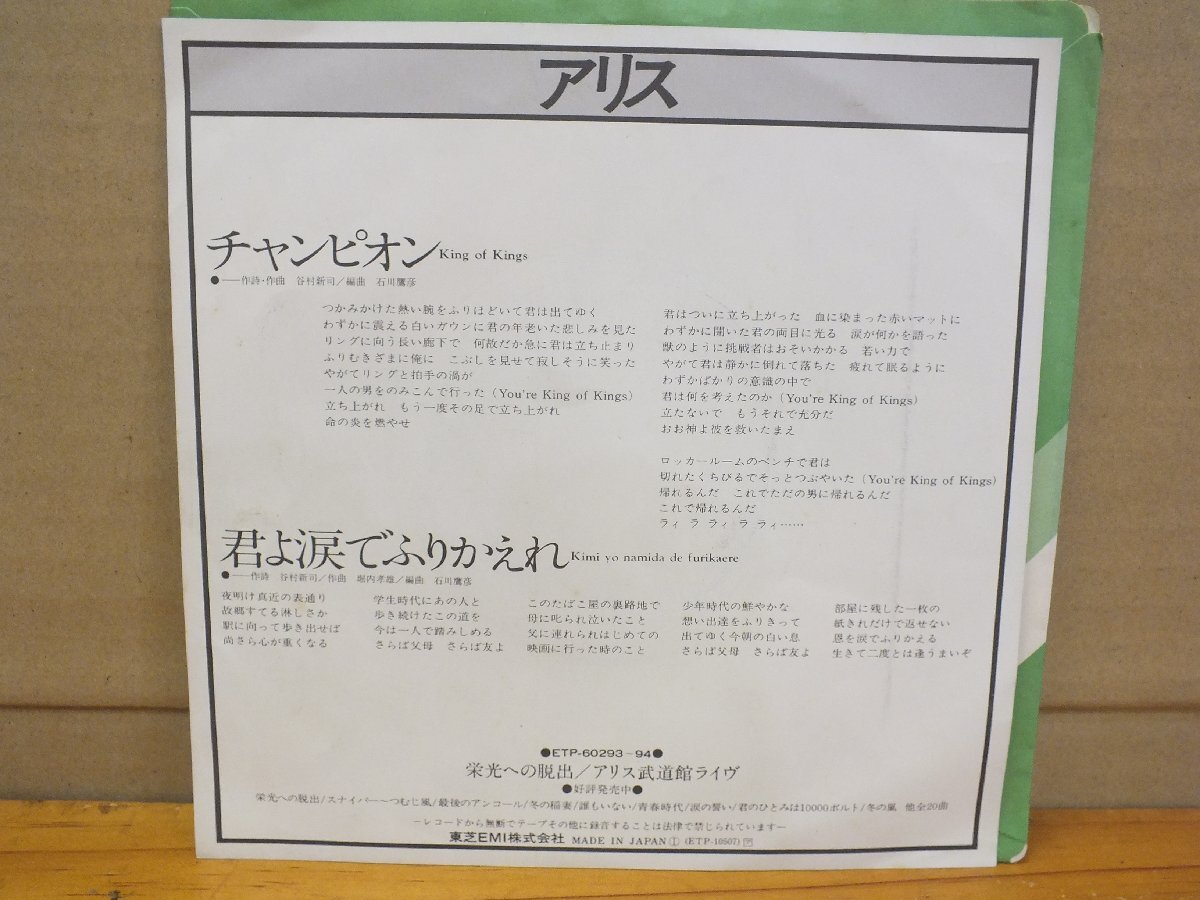 アリス
チャンピオン King of Kings
●──作詩・作曲 谷村新司／編曲 石川鷹彦
つかみかけた熱い腕をふりほどいて君は出てゆく
わずかに震える白いガウンに君の年老いた悲しみを見た
リングに向う長い廊下で 何故だか急に君は立ち止まり
ふりむきざまに俺に こぶしを見せて寂しそうに笑った
やがてリングと拍手の渦が
一人の男をのみこんで行った (You're King of Kings)
立ち上がれ もう一度その足で立ち上がれ
命の炎を燃やせ
君はついに立ち上がった 血に染まった赤いマットに
わずかに開いた君の両目に光る 涙が何かを語った
獣のように挑戦者はおそいかかる 若い力で
やがて君は静かに倒れて落ちた 疲れて眠るように
わずかばかりの意識の中で
君は何を考えたのか (You're King of Kings)
立たないで もうそれで充分だ
おお神よ彼を救いたまえ
ロッカールームのベンチで君は
切れたくちびるでそっとつぶやいた (You're King of Kings)
帰れるんだ これでただの男に帰れるんだ
これで帰れるんだ
ラィ ラ ラィ ラ ラィ……
君よ涙でふりかえれ Kimi yo namida de furikaere
●──作詩 谷村新司／作曲 堀内孝雄／編曲 石川鷹彦
夜明け真近の表通り
故郷すてる淋しさか
駅に向って歩き出せば
尚さら心が重くなる
学生時代にあの人と
歩き続けたこの道を
今は一人で踏みしめる
さらば父母 さらば友よ
このたばこ屋の裏路地で
母に叱られ泣いたこと
父に連れられはじめての
映画に行った時のこと
少年時代の鮮やかな
想い出達をふりきって
出てゆく今朝の白い息
さらば父母 さらば友よ
部屋に残した一枚の
紙きれだけで返せない
恩を涙でふりかえる
生きて二度とは逢うまいぞ
●ETP-60293～94●
栄光への脱出／アリス武道館ライヴ
●好評発売中●
栄光への脱出/スナイパー～つむじ風/最後のアンコール/冬の稲妻/誰もいない/青春時代/涙の誓い/君のひとみは10000ボルト/冬の嵐 他全20曲
─レコードから無断でテープその他に録音することは法律で禁じられています─
東芝EMI株式会社 MADE IN JAPAN Ⓘ (ETP-10507)